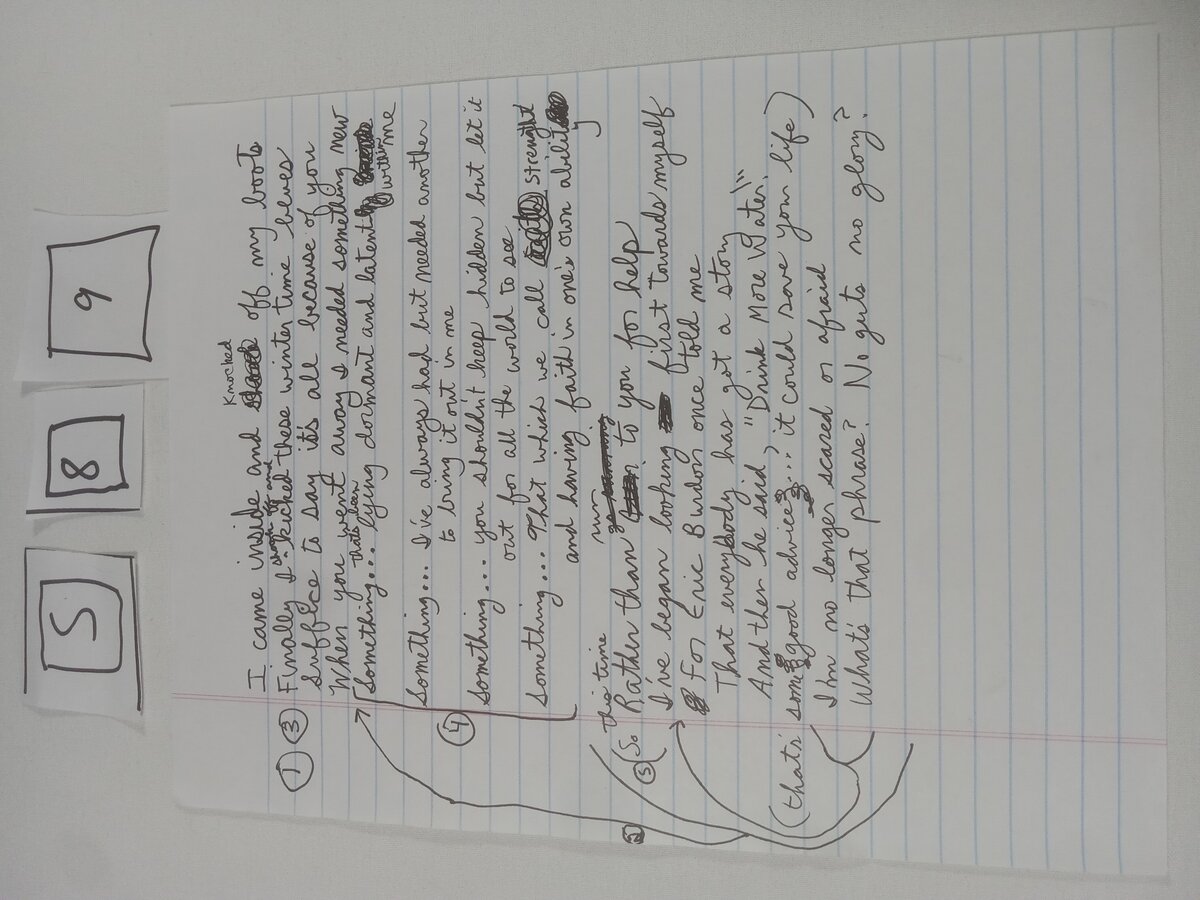 5 8 9
Knocked
I came inside and off my boots
shook off and
① ③ Finally I kicked these winter time blues
Suffice to say it's all because of you
When you went away I needed something new
that's been
Something... lying dormant and latent within me
Something... I've always had but needed another
to bring it out in me
④ Something... you shouldn't keep hidden but let it
out for all the world to see
Something... That which we call strenght
and having faith in one's own ability
this time run
⑤ So Rather than to you for help
I've began looking first towards myself
For Eric Burdon once told me
That everybody has got a story
And then he said, "Drink More Water!"
(that's some good advice... it could save your life)
I'm no longer scared or afraid
What's that phrase? No guts no glory?